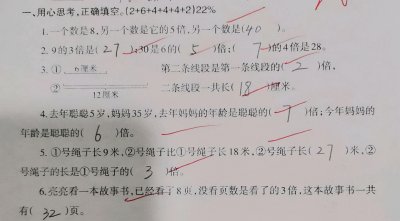 一、用心思考,正确填空。{2+6+4+4+4+2}22%
1.一个数是8,另一个数是它的5倍,另一个数是(40)。
2.9的3倍是(27);30是6的(5)倍;(7)的4倍是28。
3.① 6厘米 第二条线段是第一条线段的(2)倍,
② 12厘米 二条线段一共长(18)厘米。
4.去年聪聪5岁,妈妈35岁,去年妈妈的年龄是聪聪的(7)倍;今年妈妈
的年龄是聪聪的(6)倍。
5.①号绳子长9米,②号绳子比①号绳子长18米,②号绳子长(27)米,②
号绳子的长是①号绳子的(3)倍。
6.亮亮看一本故事书,已经看了8页,没看页数是看了的3倍,这本故事书一共
有(32)页。